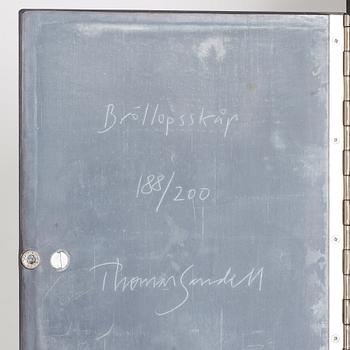 Bröllopsskåp
188/200
Thomas Sandell